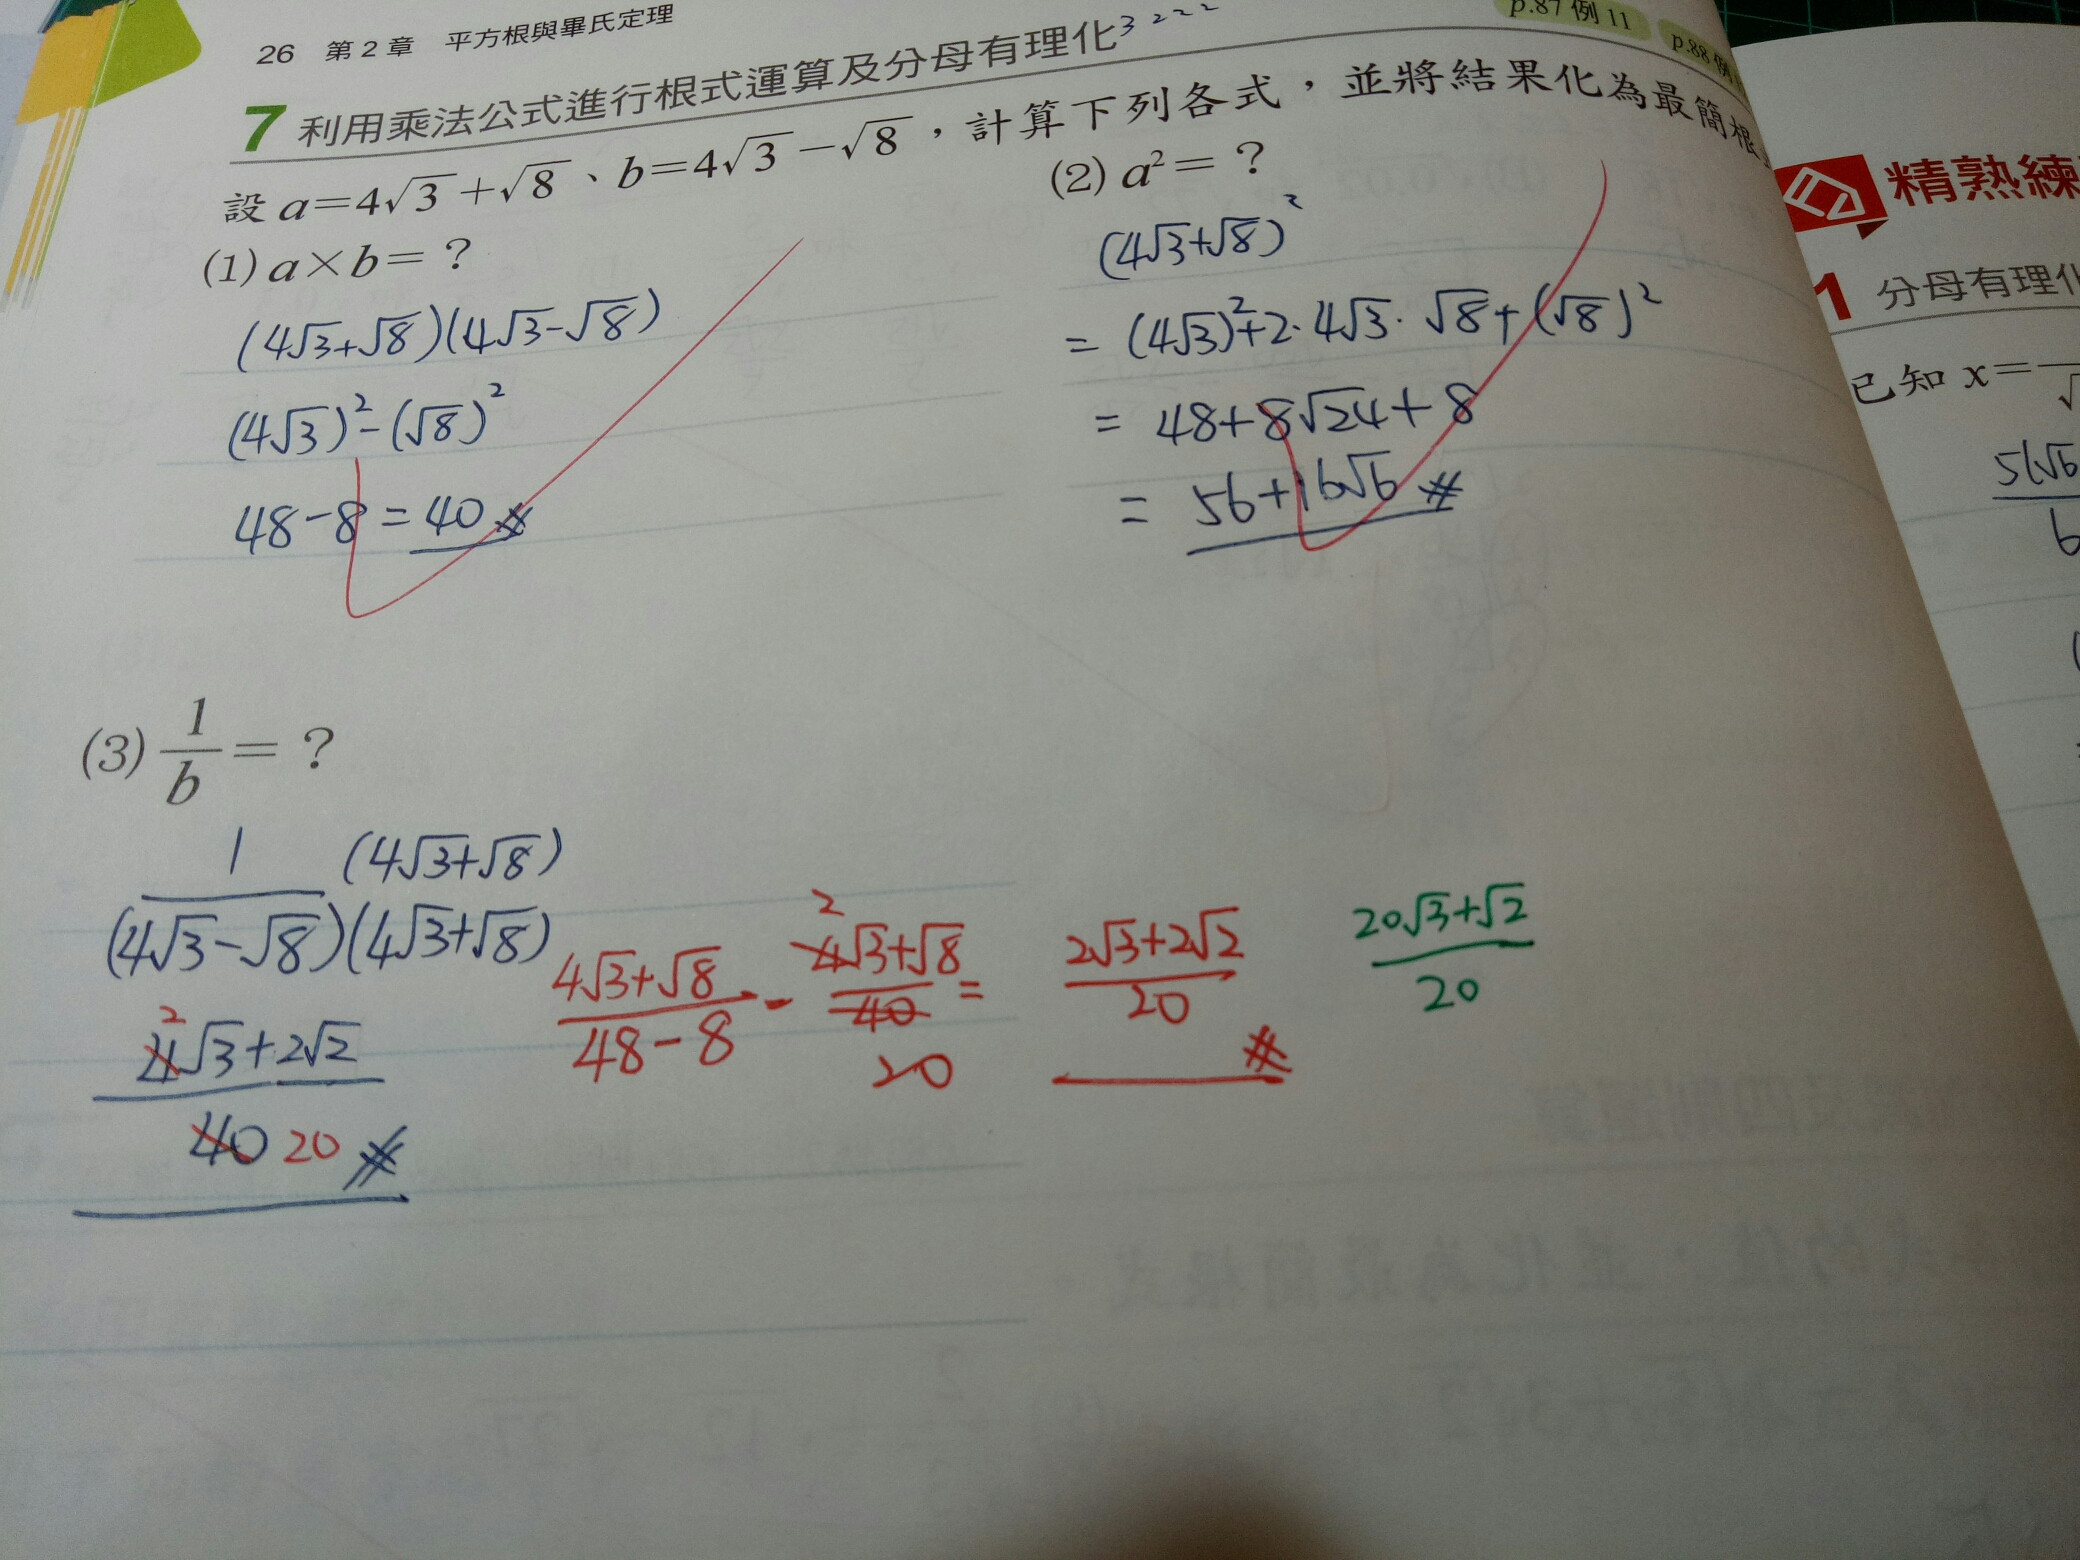 26 第2章 平方根與畢氏定理
p.87 例 11
p.88 例
7 利用乘法公式進行根式運算及分母有理化 3 2 2 2
設 a=4√3+√8、b=4√3-√8，計算下列各式，並將結果化為最簡根
(1) a×b=？
(4√3+√8)(4√3-√8)
(4√3)²-(√8)²
48-8=40 #
(2) a²=？
(4√3+√8)²
= (4√3)²+2·4√3·√8+(√8)²
= 48+8√24+8
= 56+16√6 #
(3) 1/b=？
1 (4√3+√8)
(4√3-√8)(4√3+√8)
2
4√3+2√2
40 20 #
4√3+√8
48-8
=
2
4√3+√8
40
20
=
2√3+2√2
20
#
20√3+√2
20
精熟練
1 分母有理化
已知 x=
√
5(√6
6